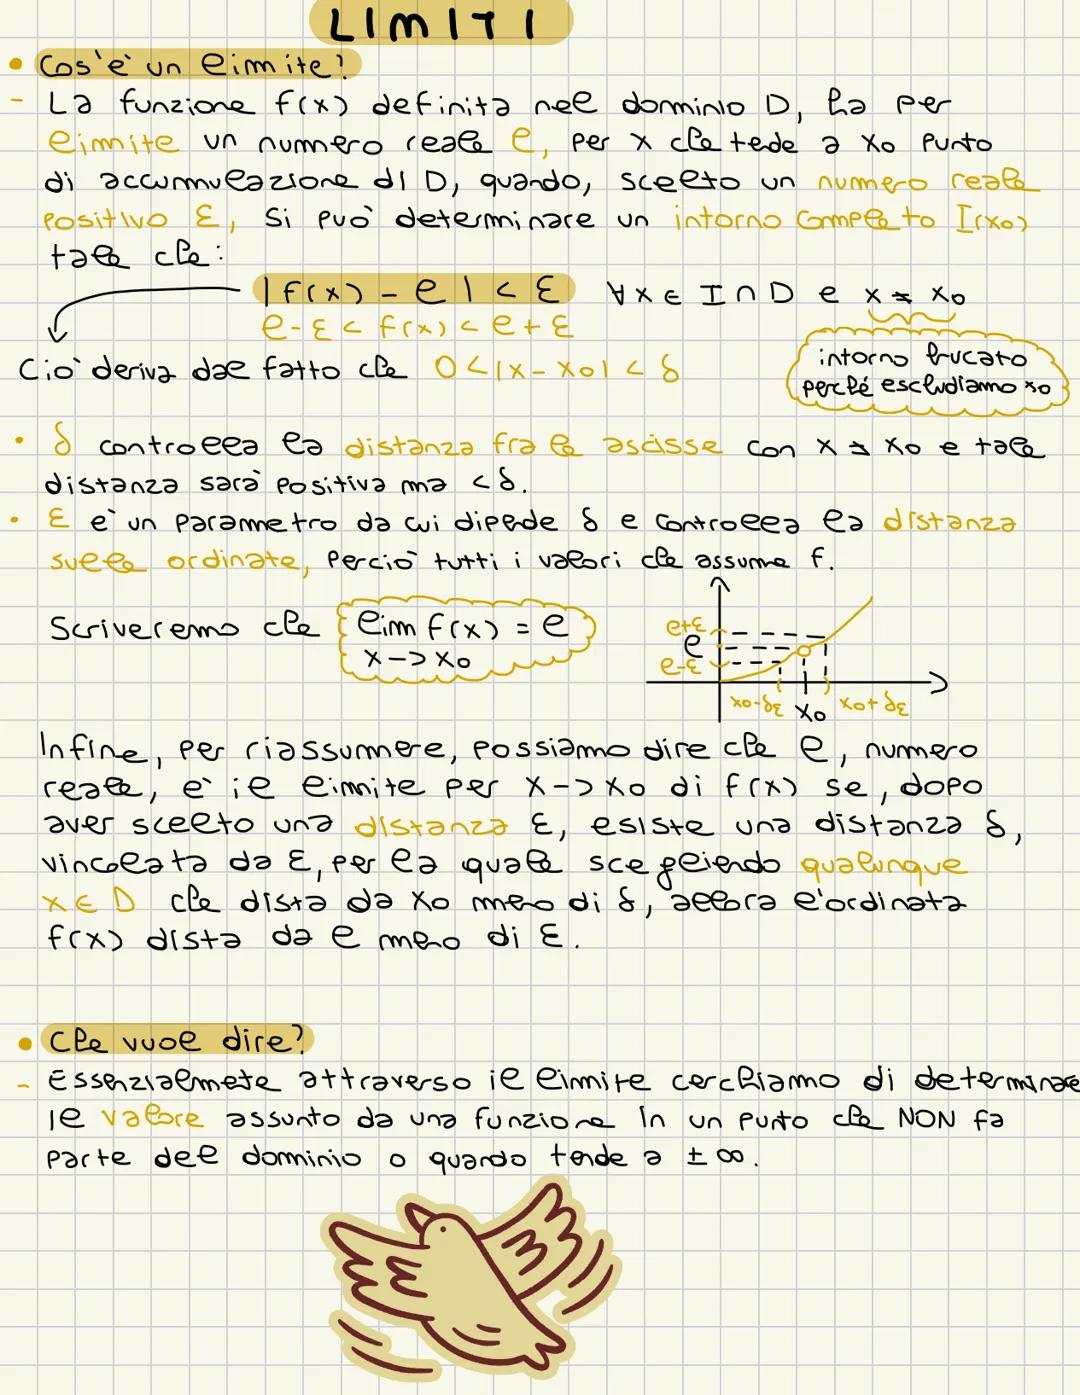 LIMITI
• Cos'è un limite?
- La funzione f(x) definita nel dominio D, ha per
limite un numero reale l, per x che tende a x₀ punto
di accumulazione di D, quando, scelto un numero reale
positivo ε, si può determinare un intorno completo I(x₀)
tale che:
|f(x) - l| < ε ∀x ∈ I∩D e x ≠ x₀
l-ε < f(x) < l+ε
Ciò deriva dal fatto che 0<|x-x₀| < δ
intorno bucato
perché escludiamo x₀
• δ controlla la distanza fra le ascisse con x ≠ x₀ e tale
distanza sarà positiva ma <δ.
• ε è un parametro da cui dipende δ e controlla la distanza
sulle ordinate, perciò tutti i valori che assume f.
Scriveremo che lim f(x) = l
x->x₀
l+ε
l
l-ε
x₀-δε x₀ x₀+δε
Infine, per riassumere, possiamo dire che l, numero
reale, è il limite per x->x₀ di f(x) se, dopo
aver scelto una distanza ε, esiste una distanza δ,
vincolata da ε, per la quale scegliendo qualunque
x∈D che dista da x₀ meno di δ, allora l'ordinata
f(x) dista da l meno di ε.
• Che vuol dire?
- Essenzialmente attraverso il limite cerchiamo di determinare
il valore assunto da una funzione in un punto che NON fa
parte del dominio o quando tende a ±∞.